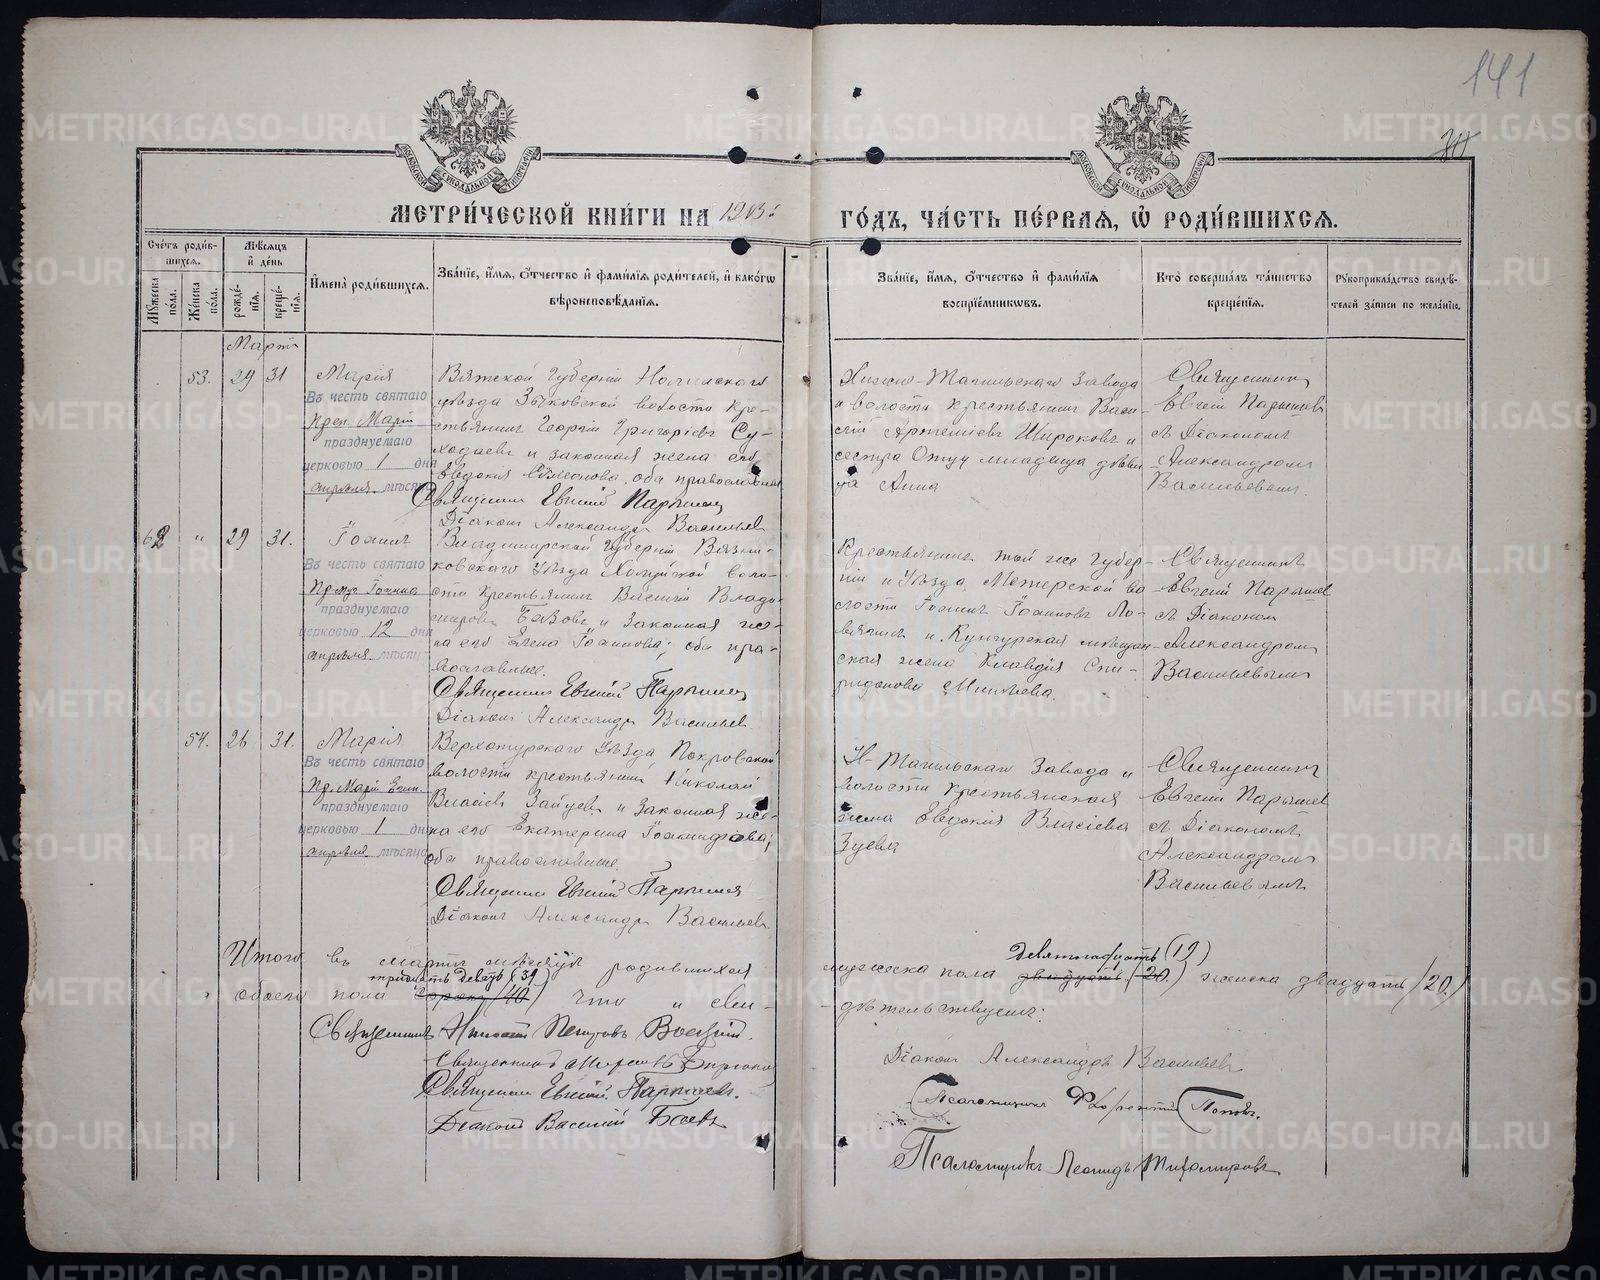 141
МЕТРИ́ЧЕСКОЙ КНИ́ГИ НА 1913
ГО́ДЪ, ЧА́СТЬ ПЕ́РВАЯ, Ѡ РОДИ́ВШИХСЯ.
Сче́тъ роди́вшихся.
Мѣ́сяцъ и де́нь
Му́жеска по́ла.
Же́нска по́ла.
рожде́нія.
креще́нія.
Имена̀ роди́вшихся.
Зва́ніе, и́мя, о́тчество и фами́лія роди́телей, и како́гѡ
вѣроисповѣ́данія.
Зва́ніе, и́мя, о́тчество и фами́лія
воспріе́мниковъ.
Кто̀ соверша́лъ та́инство
креще́нія.
Рукоприкла́дство свидѣ́-
телей за́писи по жела́нію.
Мартъ
53. 29 31
Марія
Въ честь святаго
Преп. Маріи
празднуемаго
церковью 1 дня
апрѣля мѣсяца
Вятской губерніи Нолинскаго
уѣзда Зыковской волости кре-
стьянинъ Георгій Григоріевъ Су-
ходаевъ и законная жена его
Евдокія Симеонова, оба православные
Священникъ Евгеній Парышевъ
Діаконъ Александръ Васильевъ
Нижне-Тагильскаго завода
и волости крестьянинъ Васи-
лій Артеміевъ Широковъ и
сестра отцу младенца дѣви-
ца Анна
Священникъ
Евгеній Парышевъ
съ Діакономъ
Александромъ
Васильевымъ.
62 " 29 31.
Іоаннъ
Въ честь святаго
Іоанна
празднуемаго
церковью 12 дня
апрѣля мѣсяца
Владимірской губерніи Вязни-
ковскаго уѣзда Холуйской воло-
сти крестьянинъ Василій Влади-
міровъ и законная же-
на его Елена Іоаннова; оба пра-
вославные.
Священникъ Евгеній Парышевъ
Діаконъ Александръ Васильевъ
Крестьянинъ той же губер-
ніи и уѣзда Мстерской во-
лости Іоаннъ Іоанновъ
и Кунгурская мѣщан-
ская жена Клавдія Спи-
ридонова
Священникъ
Евгеній Парышевъ
съ Діакономъ
Александромъ
Васильевымъ
54. 26 31.
Марія
Въ честь святаго
Пр. Маріи Егип.
празднуемаго
церковью 1 дня
апрѣля мѣсяца
Верхотурскаго уѣзда Покровской
волости крестьянинъ Николай
Власіевъ Зайцевъ и законная же-
на его Екатерина
оба православные.
Священникъ Евгеній Парышевъ
Діаконъ Александръ Васильевъ
Н-Тагильскаго завода и
волости крестьянская
жена Евдокія Власіева
Зуева
Священникъ
Евгеній Парышевъ
съ Діакономъ
Александромъ
Васильевымъ
Итого въ мартѣ мѣсяцѣ родившихся
тридцать девять (39)
обоего пола сорокъ (40) что и сви-
девятнадцать (19)
мужеска пола двадцать (20) женска двадцать (20)
дѣтельствуемъ:
Священникъ Петровъ
Священникъ
Священникъ Евгеній Парышевъ.
Діаконъ Василій
Діаконъ Александръ Васильевъ
Псаломщикъ Попов.
Псаломщикъ Леонидъ Тихомировъ
METRIKI.GASO-URAL.RU